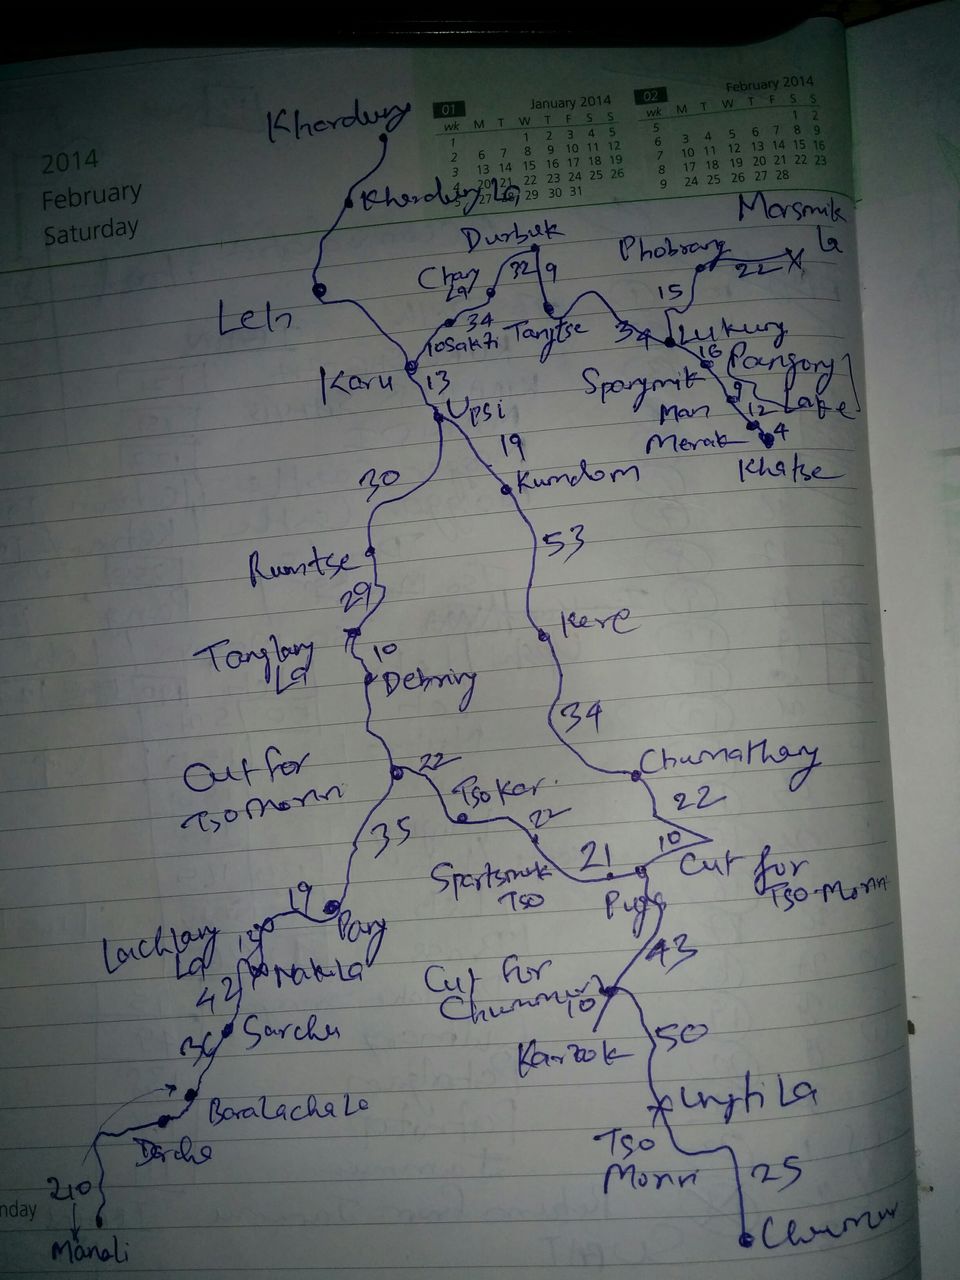 2014
February
Saturday
01 January 2014
wk M T W T F S S
1 1 2 3 4 5
2 6 7 8 9 10 11 12
3 13 14 15 16 17 18 19
4 20 21 22 23 24 25 26
5 27 28 29 30 31
02 February 2014
wk M T W T F S S
5 1 2
6 3 4 5 6 7 8 9
7 10 11 12 13 14 15 16
8 17 18 19 20 21 22 23
9 24 25 26 27 28
Khardung
Khardung La
Leh
Karu
13
Upsi
10 Sakti
34
Chang
La
32
Durbuk
9
Tangtse
34
Lukung
15
Phobrang
22
Marsmik
La
16
Pangong
Lake
Spangmik
9
Man
12
Merak
4
Khatse
30
19
Kumdom
53
Kere
34
Chumathang
22
10
Cut for
Tso-Moriri
Rumtse
29
Tanglang
La
10
Debring
22
Cut for
Tso Moriri
Tso Kar
22
Spartsmuk
Tso
21
Puga
43
Cut for
Chummur
10
Karzok
50
La
Tso
Moriri
25
Chummur
35
Pang
19
Lachlang
La
Nakila
42
Sarchu
36
Baralacha La
Darcha
210
Manali
nday